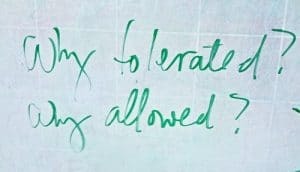 Why tolerated?
Why allowed?